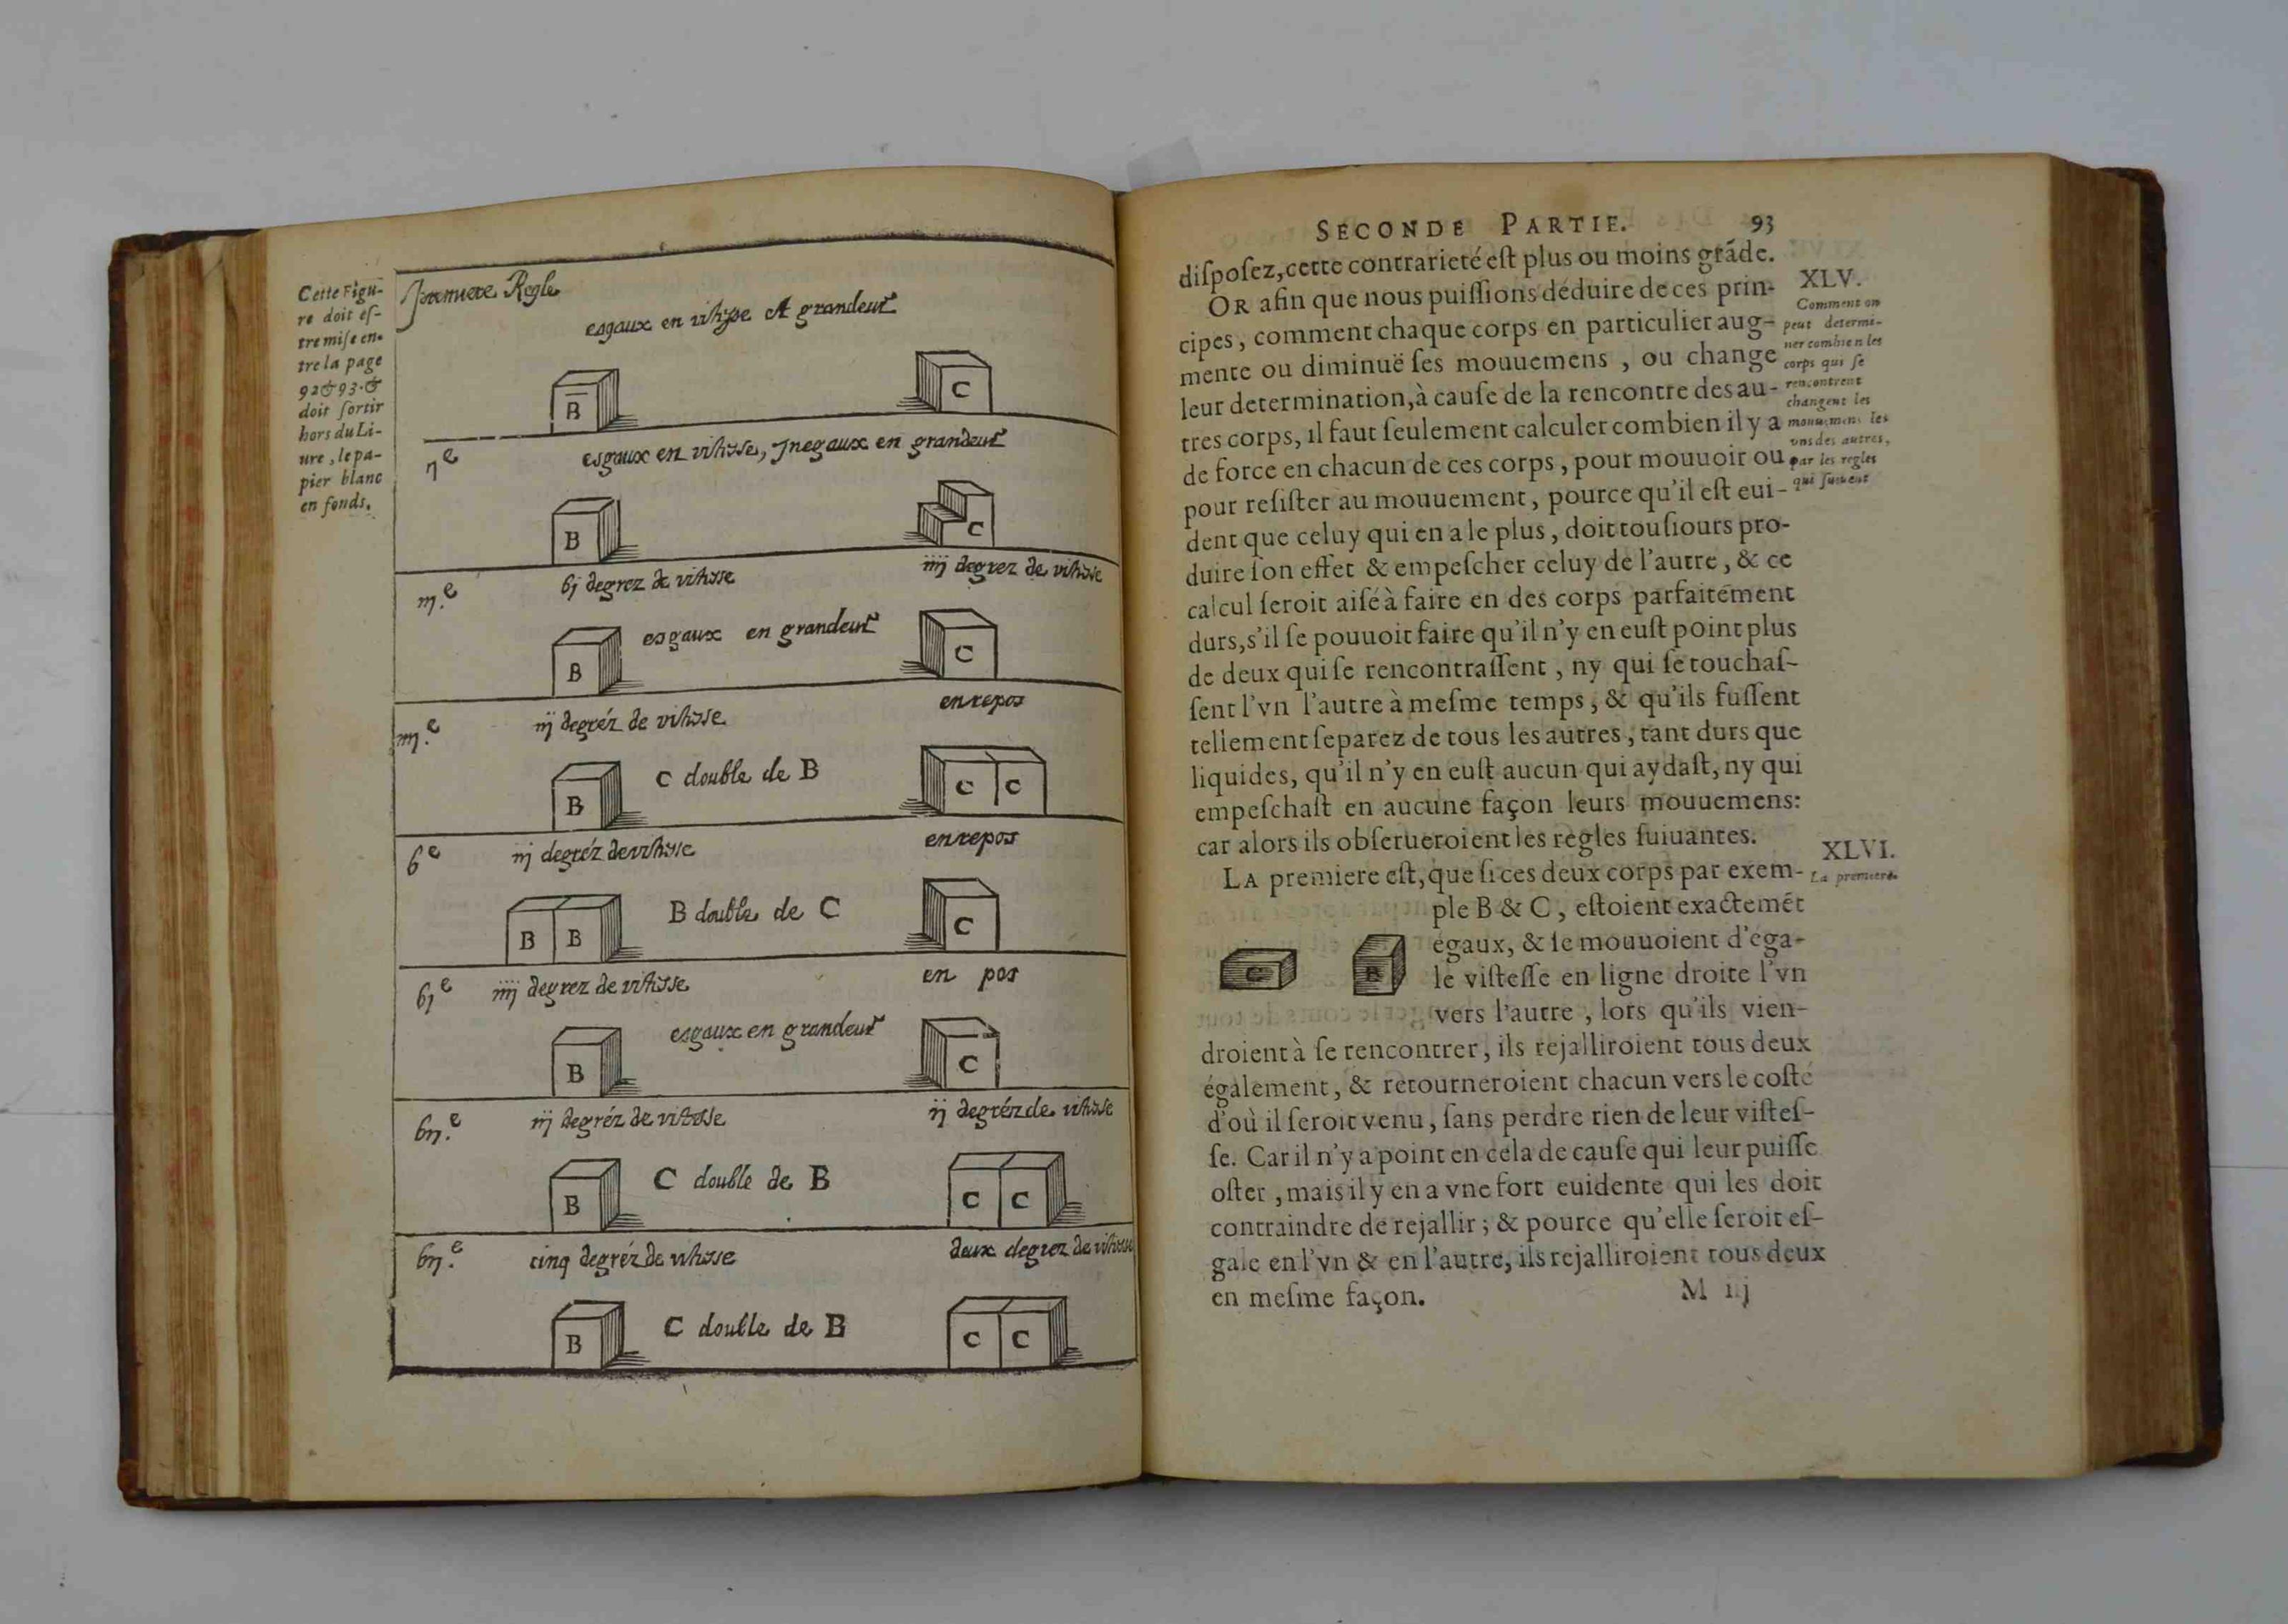 Cette Figu-
re doit eſ-
tre miſe en-
tre la page
92 & 93. &
doit ſortir
hors du Li-
ure, le pa-
pier blanc
en fonds.
premiere Regle
esgaux en vitesse et grandeur
B
C
ij e
esgaux en vitesse, Jnegaux en grandeur
B
C
iij. e
6j degrez de vitesse
iiij degrez de vitesse
B
esgaux en grandeur
C
iiij. e
iij degréz de vitesse
en repos
B
C double de B
C C
6 e
iij degréz de vitesse
en repos
B B
B double de C
C
6j e
iiij degrez de vitesse
en pos
B
esgaux en grandeur
C
6ij. e
iij degréz de vitesse
ij degréz de vitesse
B
C double de B
C C
6ij. e
cinq degréz de vitesse
deux degrez de vitesse
B
C double de B
C C
SECONDE PARTIE. 93
diſpoſez, cette contrarieté eſt plus ou moins grãde.
OR afin que nous puiſſions déduire de ces prin-
cipes, comment chaque corps en particulier aug-
mente ou diminuë ſes mouuemens, ou change
leur determination, à cauſe de la rencontre des au-
tres corps, il faut ſeulement calculer combien il y a
de force en chacun de ces corps, pour mouuoir ou
pour reſiſter au mouuement, pource qu'il eſt eui-
dent que celuy qui en a le plus, doit touſiours pro-
duire ſon effet & empeſcher celuy de l'autre, & ce
calcul ſeroit aiſé à faire en des corps parfaitement
durs, s'il ſe pouuoit faire qu'il n'y en euſt point plus
de deux qui ſe rencontraſſent, ny qui ſe touchaſ-
ſent l'vn l'autre à meſme temps, & qu'ils fuſſent
tellement ſeparez de tous les autres, tant durs que
liquides, qu'il n'y en euſt aucun qui aydaſt, ny qui
empeſchaſt en aucune façon leurs mouuemens:
car alors ils obſerueroient les regles ſuiuantes.
XLV.
Comment on
peut determi-
ner combien les
corps qui ſe
rencontrent
changent les
mouuemens les
vns des autres,
par les regles
qui ſuiuent
LA premiere eſt, que ſi ces deux corps par exem-
ple B & C, eſtoient exactemẽt
égaux, & ſe mouuoient d'éga-
le viſteſſe en ligne droite l'vn
vers l'autre, lors qu'ils vien-
droient à ſe rencontrer, ils rejalliroient tous deux
également, & retourneroient chacun vers le coſté
d'où il ſeroit venu, ſans perdre rien de leur viſteſ-
ſe. Car il n'y a point en cela de cauſe qui leur puiſſe
oſter, mais il y en a vne fort euidente qui les doit
contraindre de rejallir; & pource qu'elle ſeroit eſ-
gale en l'vn & en l'autre, ils rejalliroient tous deux
en meſme façon.
XLVI.
La premiere.
C
B
M iij